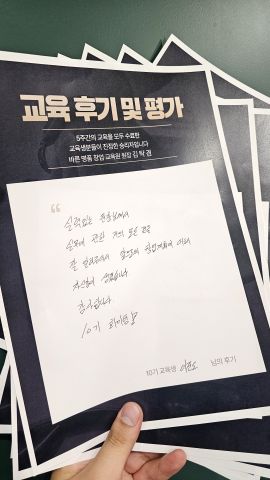 교육 후기 및 평가
5주간의 교육을 모두 수료한
교육생분들이 진정한 승리자입니다
바른 명품 창업 교육원 원장 김 탁 경
“
실무에 관한 거의 모든 것을
잘 알려주셔서 앞으로의 창업계획에 대해
자신감이 생겼습니다
감사합니다
10기
10기 교육생 님의 후기